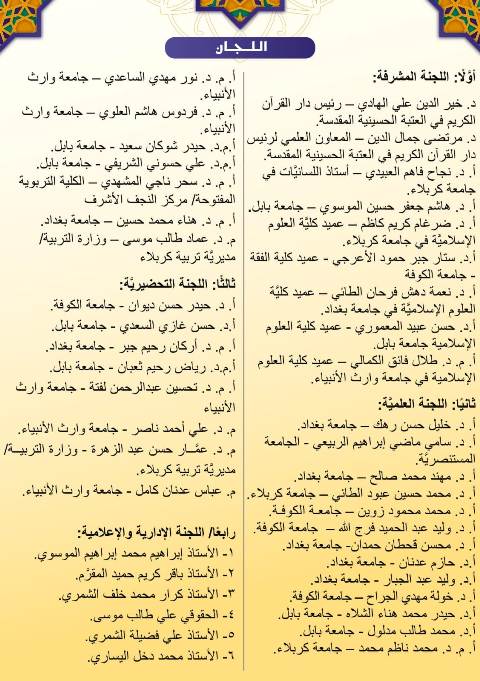 اللـجـان
أوّلًا: اللجنة المشرفة:
د. خير الدين علي الهادي – رئيس دار القرآن
الكريم في العتبة الحسينية المقدسة.
د. مرتضى جمال الدين – المعاون العلمي لرئيس
دار القرآن الكريم في العتبة الحسينية المقدسة.
أ. د. نجاح فاهم العبيدي – أستاذ اللسانيَّات في
جامعة كربلاء.
أ. د. هاشم جعفر حسين الموسوي – جامعة بابل.
أ. د. ضرغام كريم كاظم – عميد كليَّة العلوم
الإسلاميَّة في جامعة كربلاء.
أ.د. ستار جبر حمود الأعرجي - عميد كلية الفقة
- جامعة الكوفة
أ. د. نعمة دهش فرحان الطائي – عميد كليَّة
العلوم الإسلاميَّة في جامعة بغداد.
أ.د. حسن عبيد المعموري - عميد كلية العلوم
الإسلامية جامعة بابل.
أ. م. د. طلال فائق الكمالي – عميد كلية العلوم
الإسلامية في جامعة وارث الأنبياء.
ثانيًا: اللجنة العلميَّة:
أ. د. خليل حسن رهك – جامعة بغداد.
أ. د. سامي ماضي إبراهيم الربيعي - الجامعة
المستنصريَّة.
أ.د. مهند محمد صالح – جامعة بغداد.
أ. د. محمد حسين عبود الطائي – جامعة كربلاء.
أ.د. محمد محمود زوين – جامعـة الكوفـة.
أ. د. وليد عبد الحميد فرج الله – جامعة الكوفة.
أ.د. محسن قحطان حمدان- جامعة بغداد.
أ.د. حازم عدنان - جامعة بغداد.
أ.د. وليد عبد الجبار - جامعة بغداد.
أ. د. خولة مهدي الجراح – جامعة الكوفة.
أ.د. حيدر محمد هناء الشلاه - جامعة بابل.
أ.د. محمد طالب مدلول - جامعة بابل.
أ. م. د. محمد ناظم محمد – جامعة كربلاء.
أ. م. د. نور مهدي الساعدي – جامعة وارث
الأنبياء.
أ. م. د. فردوس هاشم العلوي – جامعة وارث
الأنبياء.
أ.م.د. حيدر شوكان سعيد - جامعة بابل.
أ.م.د. علي حسوني الشريفي - جامعة بابل.
أ. م. د. سحر ناجي المشهدي – الكلية التربوية
المفتوحة/ مركز النجف الأشرف
أ. م. د. هناء محمد حسين – جامعة بغداد.
م. د. عماد طالب موسى – وزارة التربية/
مديريَّة تربية كربلاء
ثالثًا: اللجنة التحضيريَّة:
أ. د. حيدر حسن ديوان - جامعة الكوفة.
أ.د. حسن غازي السعدي - جامعة بابل.
أ. م. د. أركان رحيم جبر - جامعة بغداد.
أ.م.د. رياض رحيم ثعبان - جامعة بابل.
أ. م. د. تحسين عبدالرحمن لفتة - جامعة وارث
الأنبياء
م. د. علي أحمد ناصر - جامعة وارث الأنبياء.
م. د. عمَّـار حسن عبد الزهرة - وزارة التربيـة/
مديريَّة تربية كربلاء.
م. عباس عدنان كامل - جامعة وارث الأنبياء.
رابعًا/ اللجنة الإدارية والإعلامية:
١- الأستاذ إبراهيم محمد إبراهيم الموسوي.
٢- الأستاذ باقر كريم حميد المقرَّم.
٣- الأستاذ كرار محمد خلف الشمري.
٤- الحقوقي علي طالب موسى.
٥- الأستاذ علي فضيلة الشمري.
٦- الأستاذ محمد دخل اليساري.